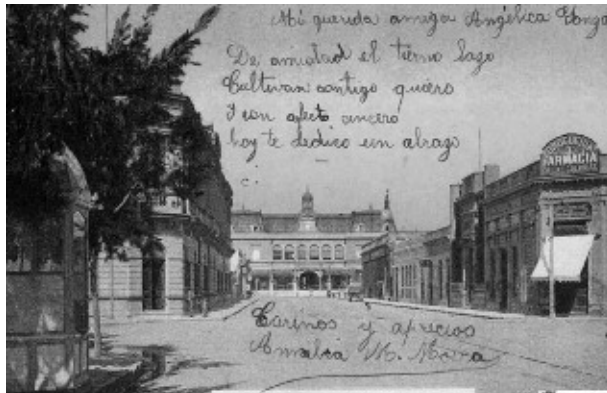 Mi querida amiga Angélica
De amistad el tierno lazo
Cultivar contigo quiero
Y con afecto sincero
hoy te dedico un abrazo
FARMACIA
Cariños y aprecios
Amalia M.